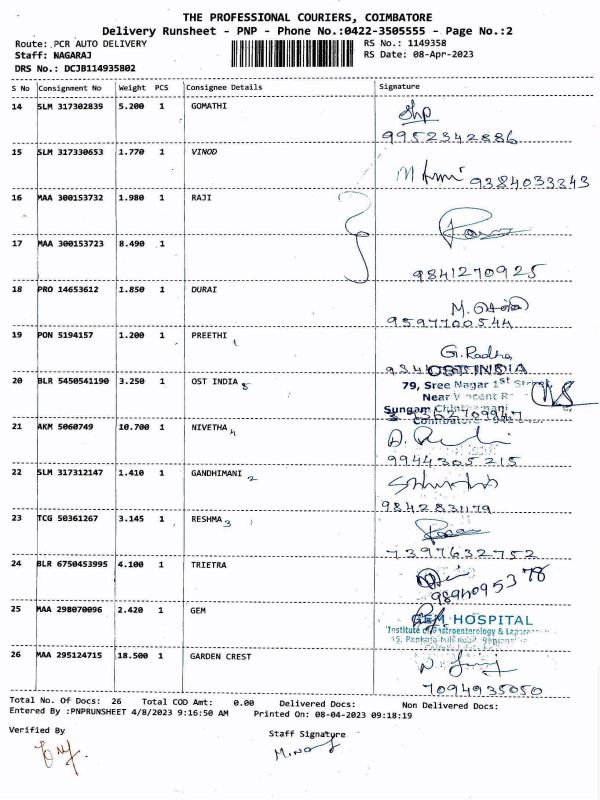 THE PROFESSIONAL COURIERS, COIMBATORE
Delivery Runsheet - PNP - Phone No.:0422-3505555 - Page No.:2
Route: PCR AUTO DELIVERY RS No.: 1149358
Staff: NAGARAJ RS Date: 08-Apr-2023
DRS No.: DCJB114935802
S No Consignment No Weight PCS Consignee Details Signature
14 SLM 317302839 5.200 1 GOMATHI
9952342886
15 SLM 317330653 1.770 1 VINOD
9384033343
16 MAA 300153732 1.980 1 RAJI
17 MAA 300153723 8.490 1
9841270925
18 PRO 14653612 1.850 1 DURAI
9597700544
19 PON 5194157 1.200 1 PREETHI 1
G. Radha
OST INDIA
20 BLR 5450541190 3.250 1 OST INDIA 5
79, Sree Nagar 1st
Near
Sungam
21 AKM 5060749 10.700 1 NIVETHA 4
9944305215
22 SLM 317312147 1.410 1 GANDHIMANI 2
9842831179
23 TCG 50361267 3.145 1 RESHMA 3
7397632752
24 BLR 6750453995 4.100 1 TRIETRA
9894095378
25 MAA 298070096 2.420 1 GEM
GEM HOSPITAL
Institute of Gastroenterology &
26 MAA 295124715 18.500 1 GARDEN CREST
7094935050
Total No. Of Docs: 26 Total COD Amt: 0.00 Delivered Docs: Non Delivered Docs:
Entered By :PNPRUNSHEET 4/8/2023 9:16:50 AM Printed On: 08-04-2023 09:18:19
Verified By Staff Signature